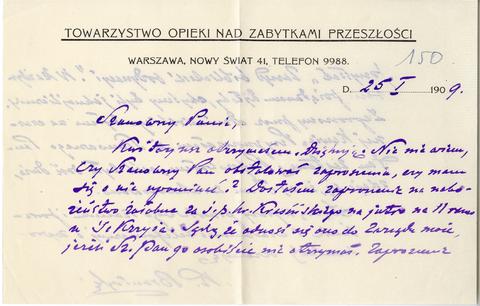 TOWARZYSTWO OPIEKI NAD ZABYTKAMI PRZESZŁOŚCI
WARSZAWA, NOWY ŚWIAT 41, TELEFON 9988.
150
D. 25 I 1909.
Szanowny Panie,
Kwitaryusz otrzymałem. Dziękuję. Nic nie wiem,
czy Szanowny Pan obstalował zaproszenia, czy mam
się o nie upomnieć? Dostałem zaproszenie na nabo-
żeństwo żałobne za ś.p. hr. Krasińskiego na jutro na 11 rano
u Ś. Krzyża. Sądzę, że odnosi się ono do Zarządu może,
jeżeli Sz. Pan go osobiście nie otrzymał. Zaproszenie